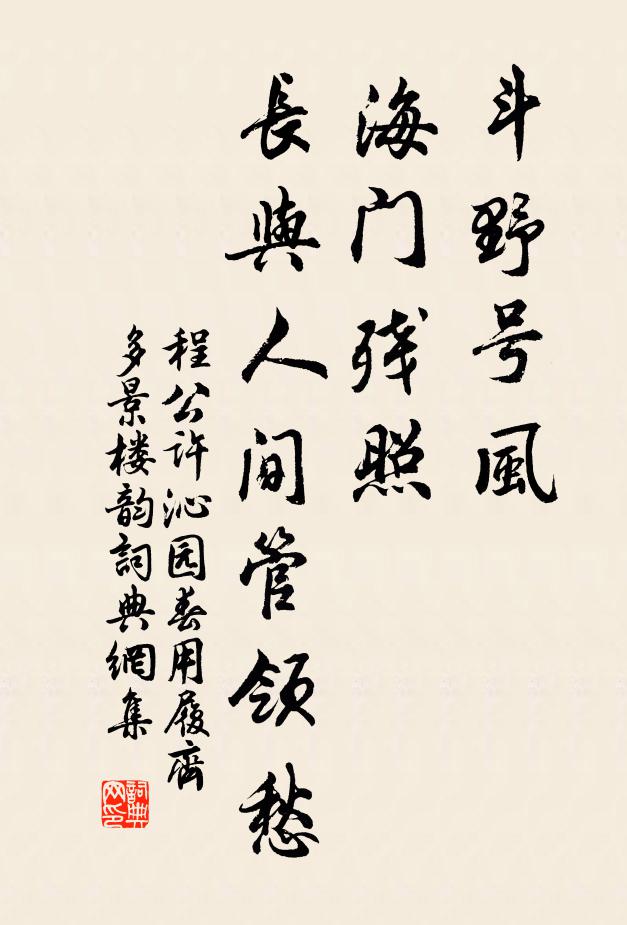 斗野号風
海门残照
長與人间管领愁
程公许沁园春用履齊
多景楼韵詞典網集
詞典网印